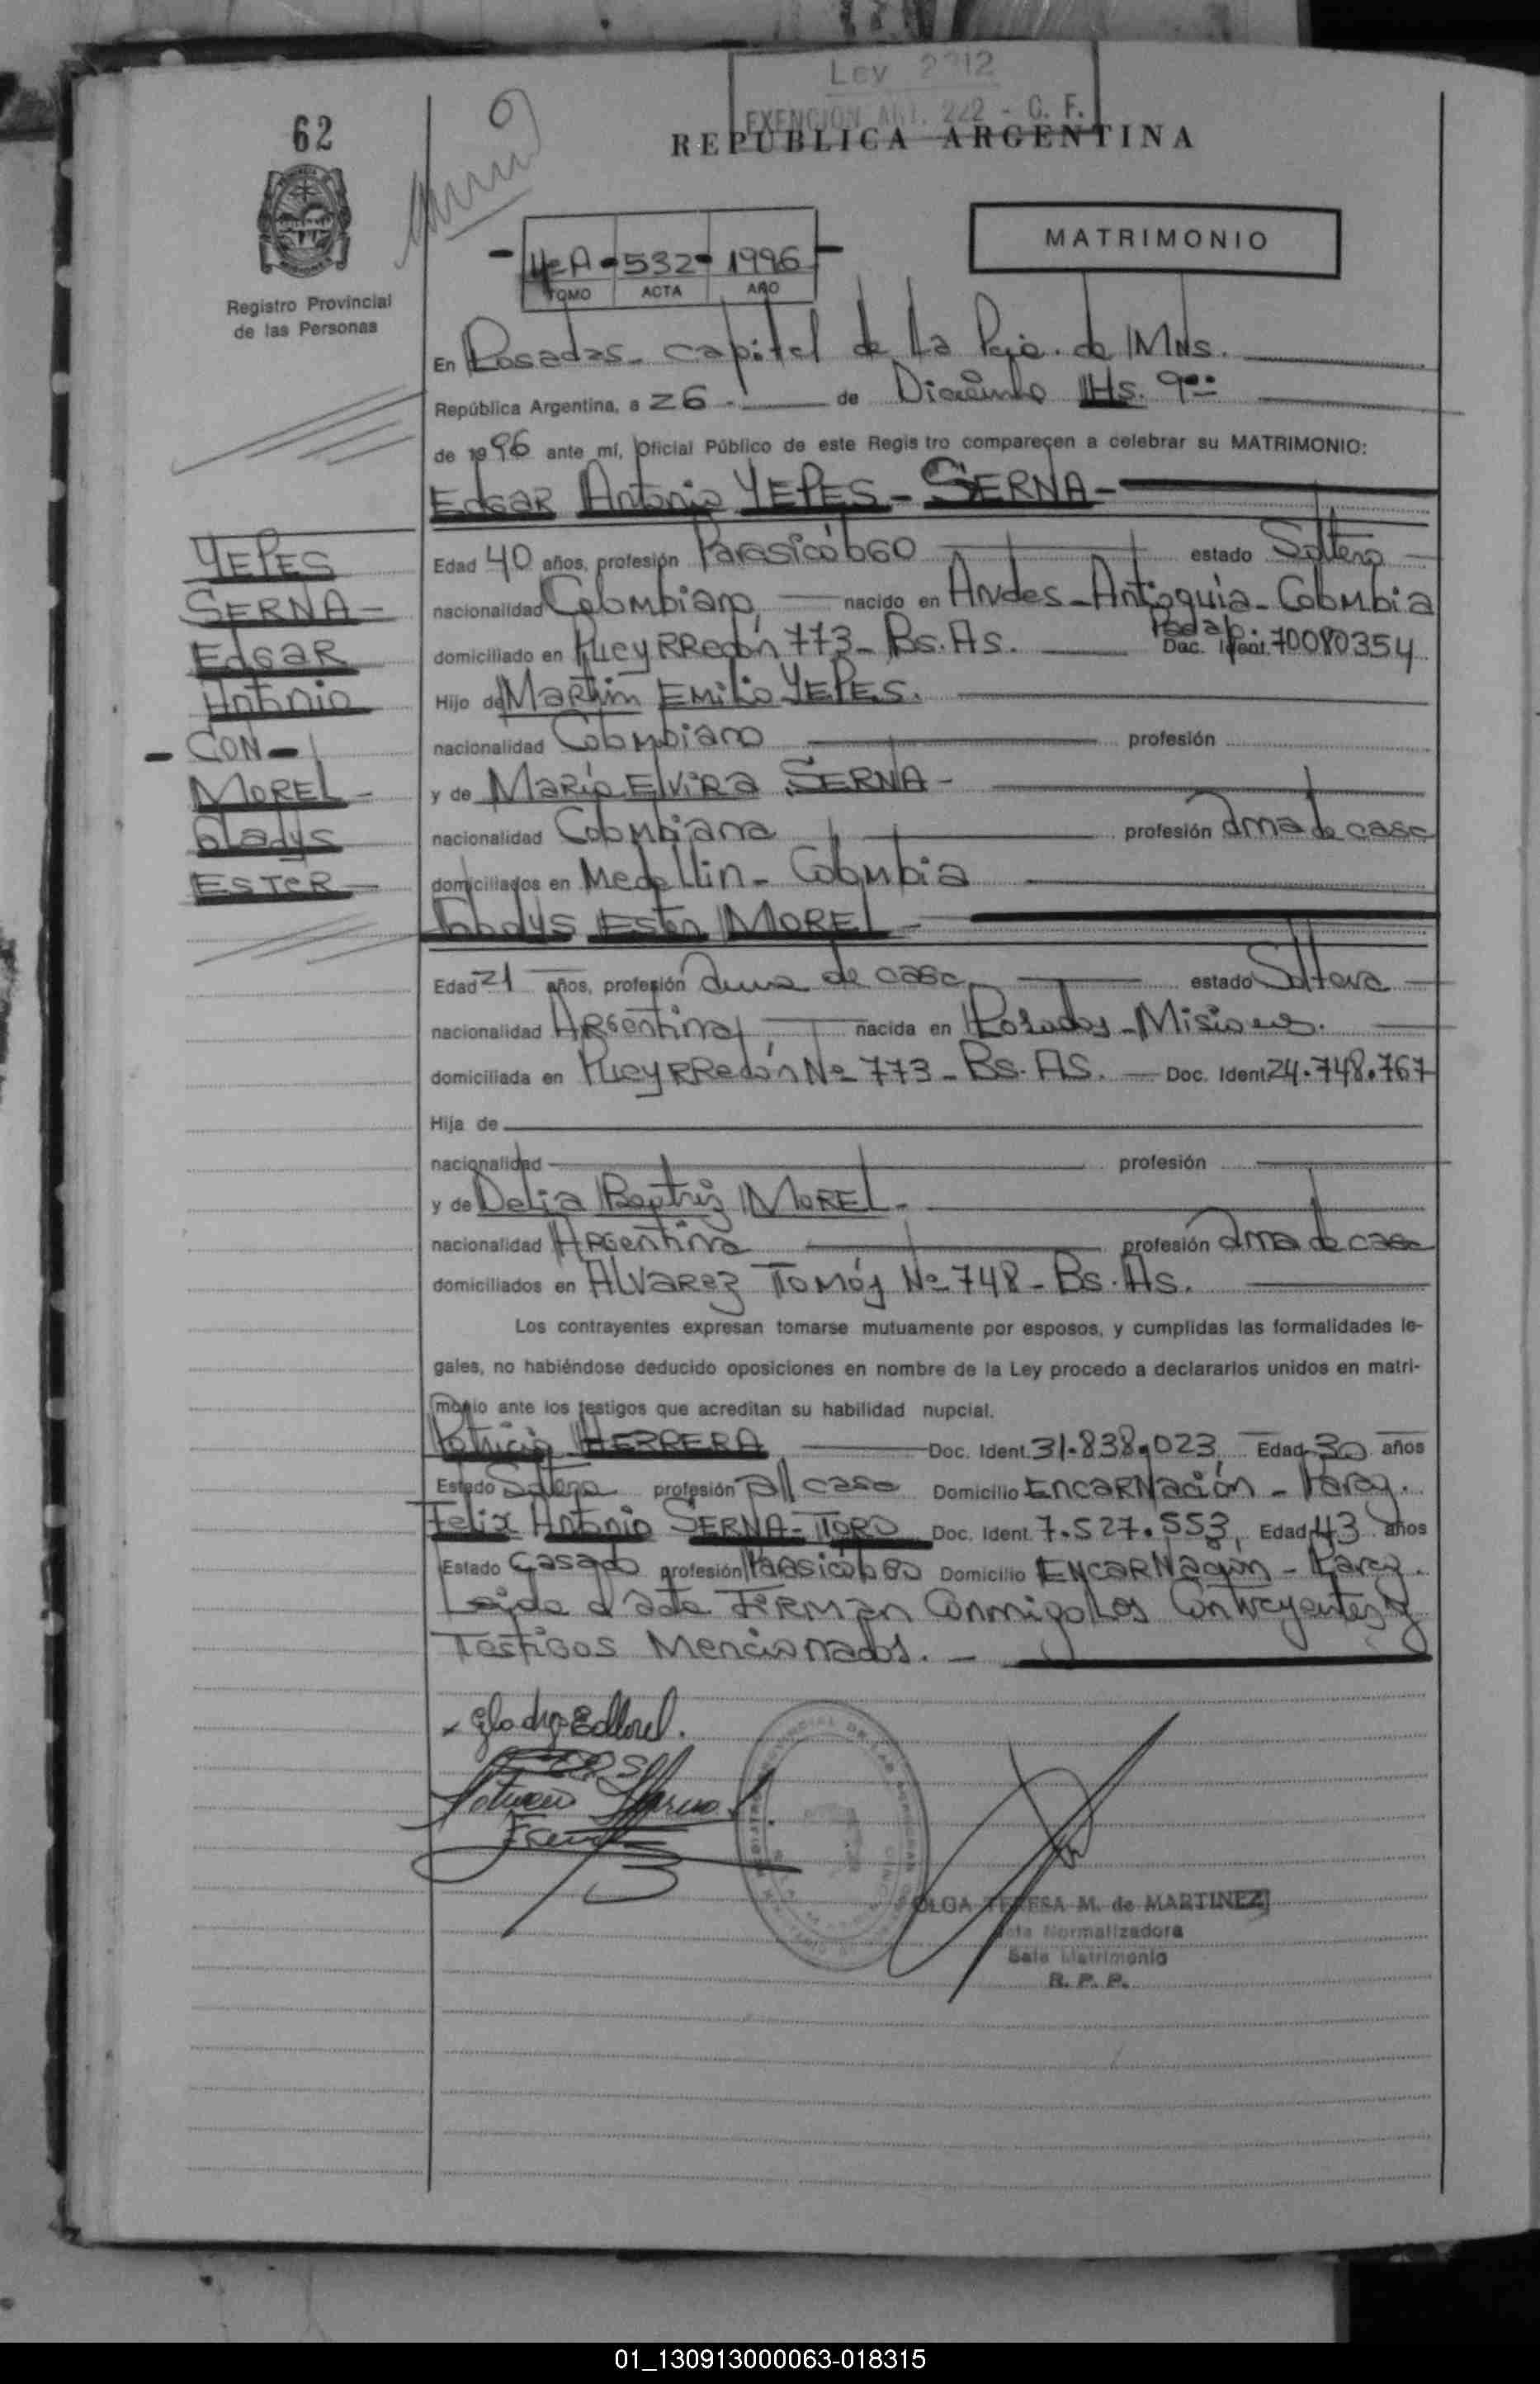 Ley 2212
EXENCION ART. 222 - C. F.
62
REPUBLICA ARGENTINA
MATRIMONIO
4º A - 532 - 1996
TOMO ACTA AÑO
Registro Provincial
de las Personas
En Posadas - capital de la Pcia. de Mns.
República Argentina, a 26 de Diciembre Hs. 9
de 1996 ante mí, Oficial Público de este Registro comparecen a celebrar su MATRIMONIO:
Edgar Antonio YEPES - SERNA -
YEPES
SERNA -
Edgar
Antonio
- CON -
MOREL -
Gladys
ESTER
Edad 40 años, profesión Parasicólogo estado Soltero
nacionalidad Colombiano nacido en Andes - Antioquia - Colombia
domiciliado en Pueyrredón 773 - Bs. As. Doc. Ident. 70080354
Hijo de Martin Emilio YEPES.
nacionalidad Colombiano profesión
y de Maria Elvira SERNA -
nacionalidad Colombiana profesión ama de casa
domiciliados en Medellin - Colombia
Gladys Ester MOREL -
Edad 21 años, profesión ama de casa estado Soltera
nacionalidad Argentina, nacida en Posadas - Misiones.
domiciliada en Pueyrredón Nº 773 - Bs. AS. Doc. Ident 24.748.767
Hija de
nacionalidad profesión
y de Delia Beatriz MOREL -
nacionalidad Argentina profesión ama de casa
domiciliados en Alvarez Tomás Nº 748 - Bs. As.
Los contrayentes expresan tomarse mutuamente por esposos, y cumplidas las formalidades le-
gales, no habiéndose deducido oposiciones en nombre de la Ley procedo a declararlos unidos en matri-
monio ante los testigos que acreditan su habilidad nupcial.
Patricia HERRERA Doc. Ident. 31.838.023 Edad 30 años
Estado Soltera profesión casa Domicilio Encarnación - Parag.
Felix Antonio SERNA - TORO Doc. Ident. 7.527.553, Edad 43 años
Estado Casado profesión Parasicólogo Domicilio Encarnación - Parag.
Leida el acta FIRMAN Conmigo Los Contrayentes y
Testigos Mencionados. -
Gladys E Morel.
OLGA TERESA M. de MARTINEZ
Normalizadora
Sala Matrimonio
R. P. P.
01_130913000063-018315